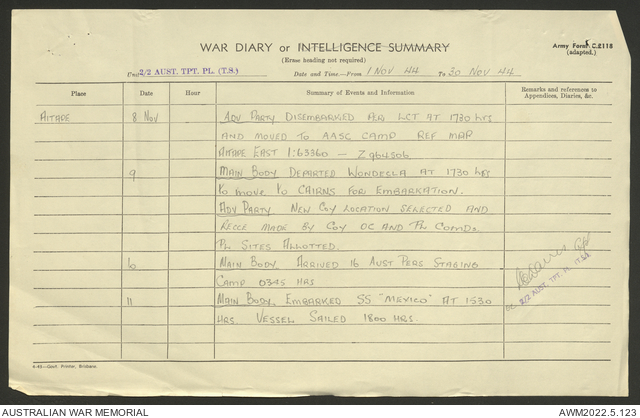 WAR DIARY or INTELLIGENCE SUMMARY
(Erase heading not required)
Army Form C.2118
(adapted.)
Unit 2/2 AUST. TPT. PL. (T.S.) Date and Time.—From 1 NOV 44 To 30 NOV 44
Place Date Hour Summary of Events and Information Remarks and references to Appendices, Diaries, &c.
AITAPE 8 NOV ADV PARTY DISEMBARKED PER LCT AT 1730 HRS
AND MOVED TO AASC CAMP REF MAP
AITAPE EAST 1:63360 — Z964506
9 MAIN BODY DEPARTED WONDECLA AT 1730 HRS
TO MOVE TO CAIRNS FOR EMBARKATION.
ADV PARTY NEW COY LOCATION SELECTED AND
RECCE MADE BY COY OC AND PL COMDS
PL SITES ALLOTTED.
MAIN BODY ARRIVED 16 AUST PERS STAGING
CAMP 0345 HRS
11 MAIN BODY EMBARKED SS "MEXICO" AT 1530
HRS. VESSEL SAILED 1800 HRS.
OC. 2/2 AUST. TPT. PL. (T.S.)
4-43—Govt. Printer, Brisbane.
AUSTRALIAN WAR MEMORIAL AWM2022.5.123